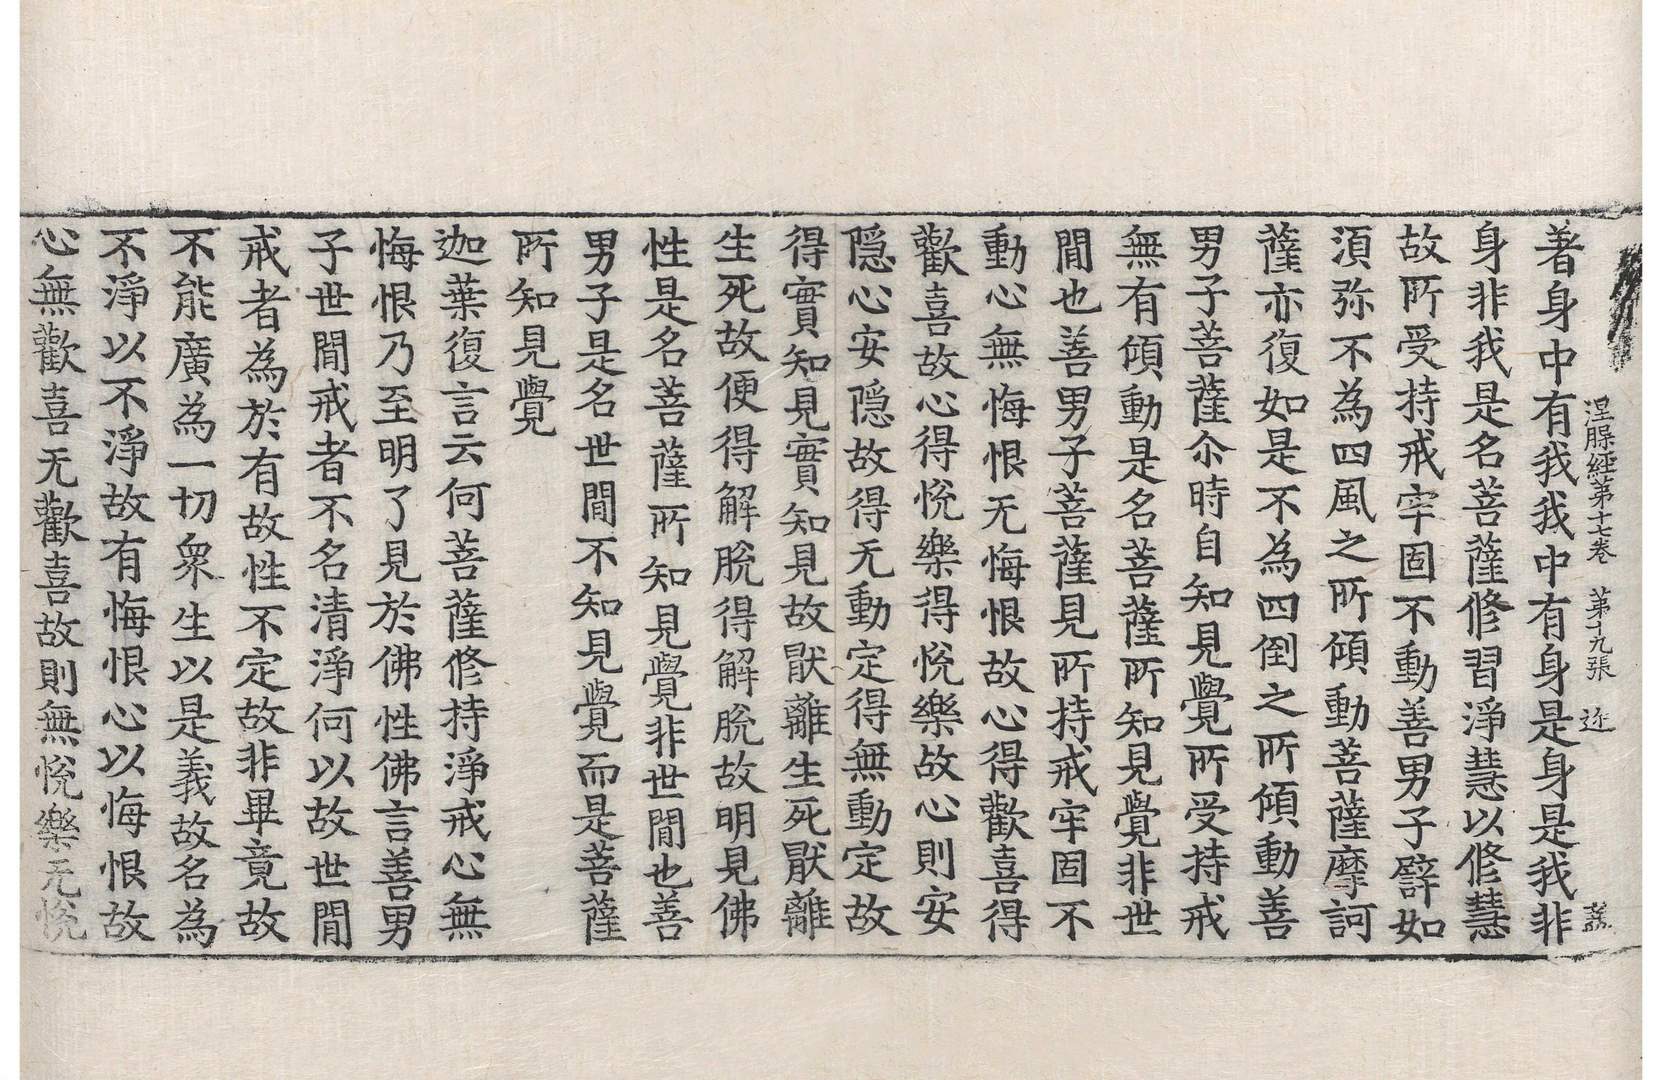 涅槃經第十七卷　第十九張　迩
著身中有我我中有身是身是我非
身非我是名菩薩修習淨慧以修慧
故所受持戒牢固不動善男子譬如
湏弥不為四風之所傾動菩薩摩訶
薩亦復如是不為四倒之所傾動善
男子菩薩尒時自知見覺所受持戒
無有傾動是名菩薩所知見覺非世
間也善男子菩薩見所持戒牢固不
動心無悔恨无悔恨故心得歡喜得
歡喜故心得悅樂得悅樂故心則安
隠心安隠故得无動定得無動定故
得實知見實知見故猒離生死猒離
生死故便得解脫得解脫故明見佛
性是名菩薩所知見覺非世間也善
男子是名世間不知見覺而是菩薩
所知見覺
迦葉復言云何菩薩修持淨戒心無
悔恨乃至明了見於佛性佛言善男
子世間戒者不名清淨何以故世間
戒者為於有故性不定故非畢竟故
不能廣為一切眾生以是義故名為
不淨以不淨故有悔恨心以悔恨故
心無歡喜无歡喜故則無悅樂无悅